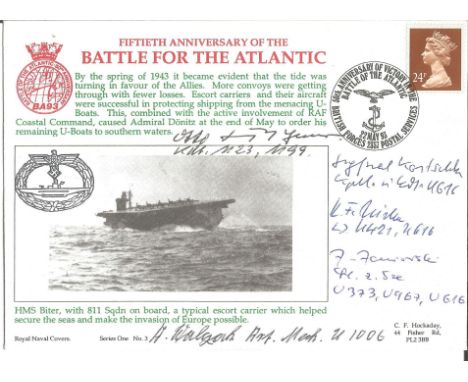 FIFTIETH ANNIVERSARY OF THE
BATTLE FOR THE ATLANTIC
By the spring of 1943 it became evident that the tide was
turning in favour of the Allies. More convoys were getting
through with fewer losses. Escort carriers and their aircraft
were successful in protecting shipping from the menacing U-
Boats. This, combined with the active involvement of RAF
Coastal Command, caused Admiral Dönitz at the end of May to order his
remaining U-Boats to southern waters.
BATTLE OF THE ATLANTIC 50TH ANNIVERSARY
BA93
24P
50th ANNIVERSARY OF VICTORY IN THE
BATTLE OF THE ATLANTIC
22 MAY 93
BRITISH FORCES 2357 POSTAL SERVICES
U23, U99.
Siegfried
U616
U421, U616
U373, U967, U616
HMS Biter, with 811 Sqdn on board, a typical escort carrier which helped
secure the seas and make the invasion of Europe possible.
Royal Naval Covers. Series One No.3
A. U 1006
C. F. Hockaday,
44 Fisher Rd,
PL2 3BB